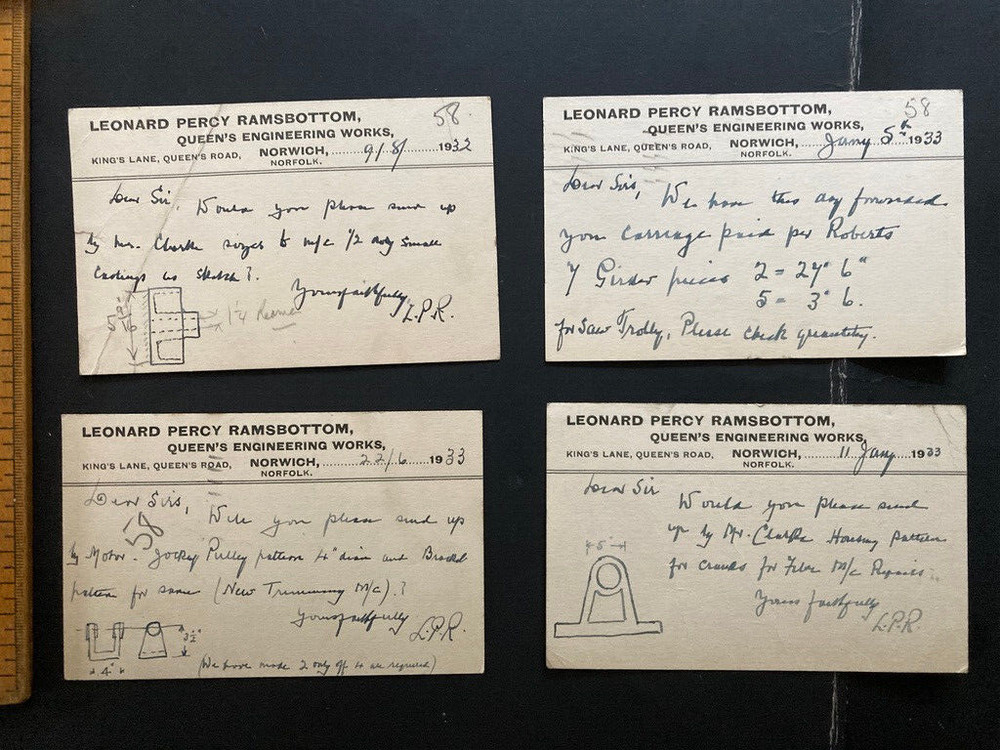 LEONARD PERCY RAMSBOTTOM,
58
QUEEN'S ENGINEERING WORKS,
KING'S LANE, QUEEN'S ROAD, NORWICH, 9/8/ 1932
NORFOLK.
Dear Sir, Would you please send up
by Mr. Clarke sizes to m/c 1/2 doz small
Castings as sketch?
Yours faithfully
L.P.R.
1¼
LEONARD PERCY RAMSBOTTOM,
58
QUEEN'S ENGINEERING WORKS,
KING'S LANE, QUEEN'S ROAD, NORWICH, Jany 5th 1933
NORFOLK.
Dear Sirs, We have this day forwarded
you carriage paid per Roberts
7 Girder pieces 2 = 24" 6"
5 = 3" 6.
for Saw Trolly, Please check quantity.
LEONARD PERCY RAMSBOTTOM,
QUEEN'S ENGINEERING WORKS,
KING'S LANE, QUEEN'S ROAD, NORWICH, 22/6 1933
NORFOLK.
Dear Sirs,
58
Will you please send up
by Motor. Jockey Pulley pattern 4" diam and Bracket
pattern for same (New Trimming M/c)?
Yours faithfully
L.P.R.
3½"
4"
(We have made 2 only off 4 are required)
LEONARD PERCY RAMSBOTTOM,
QUEEN'S ENGINEERING WORKS,
KING'S LANE, QUEEN'S ROAD, NORWICH, 11 Jany 1933
NORFOLK.
Dear Sir
Would you please send
up by Mr. Clarke Housing pattern
for M/c Repairs
5"
Yours faithfully
L.P.R.